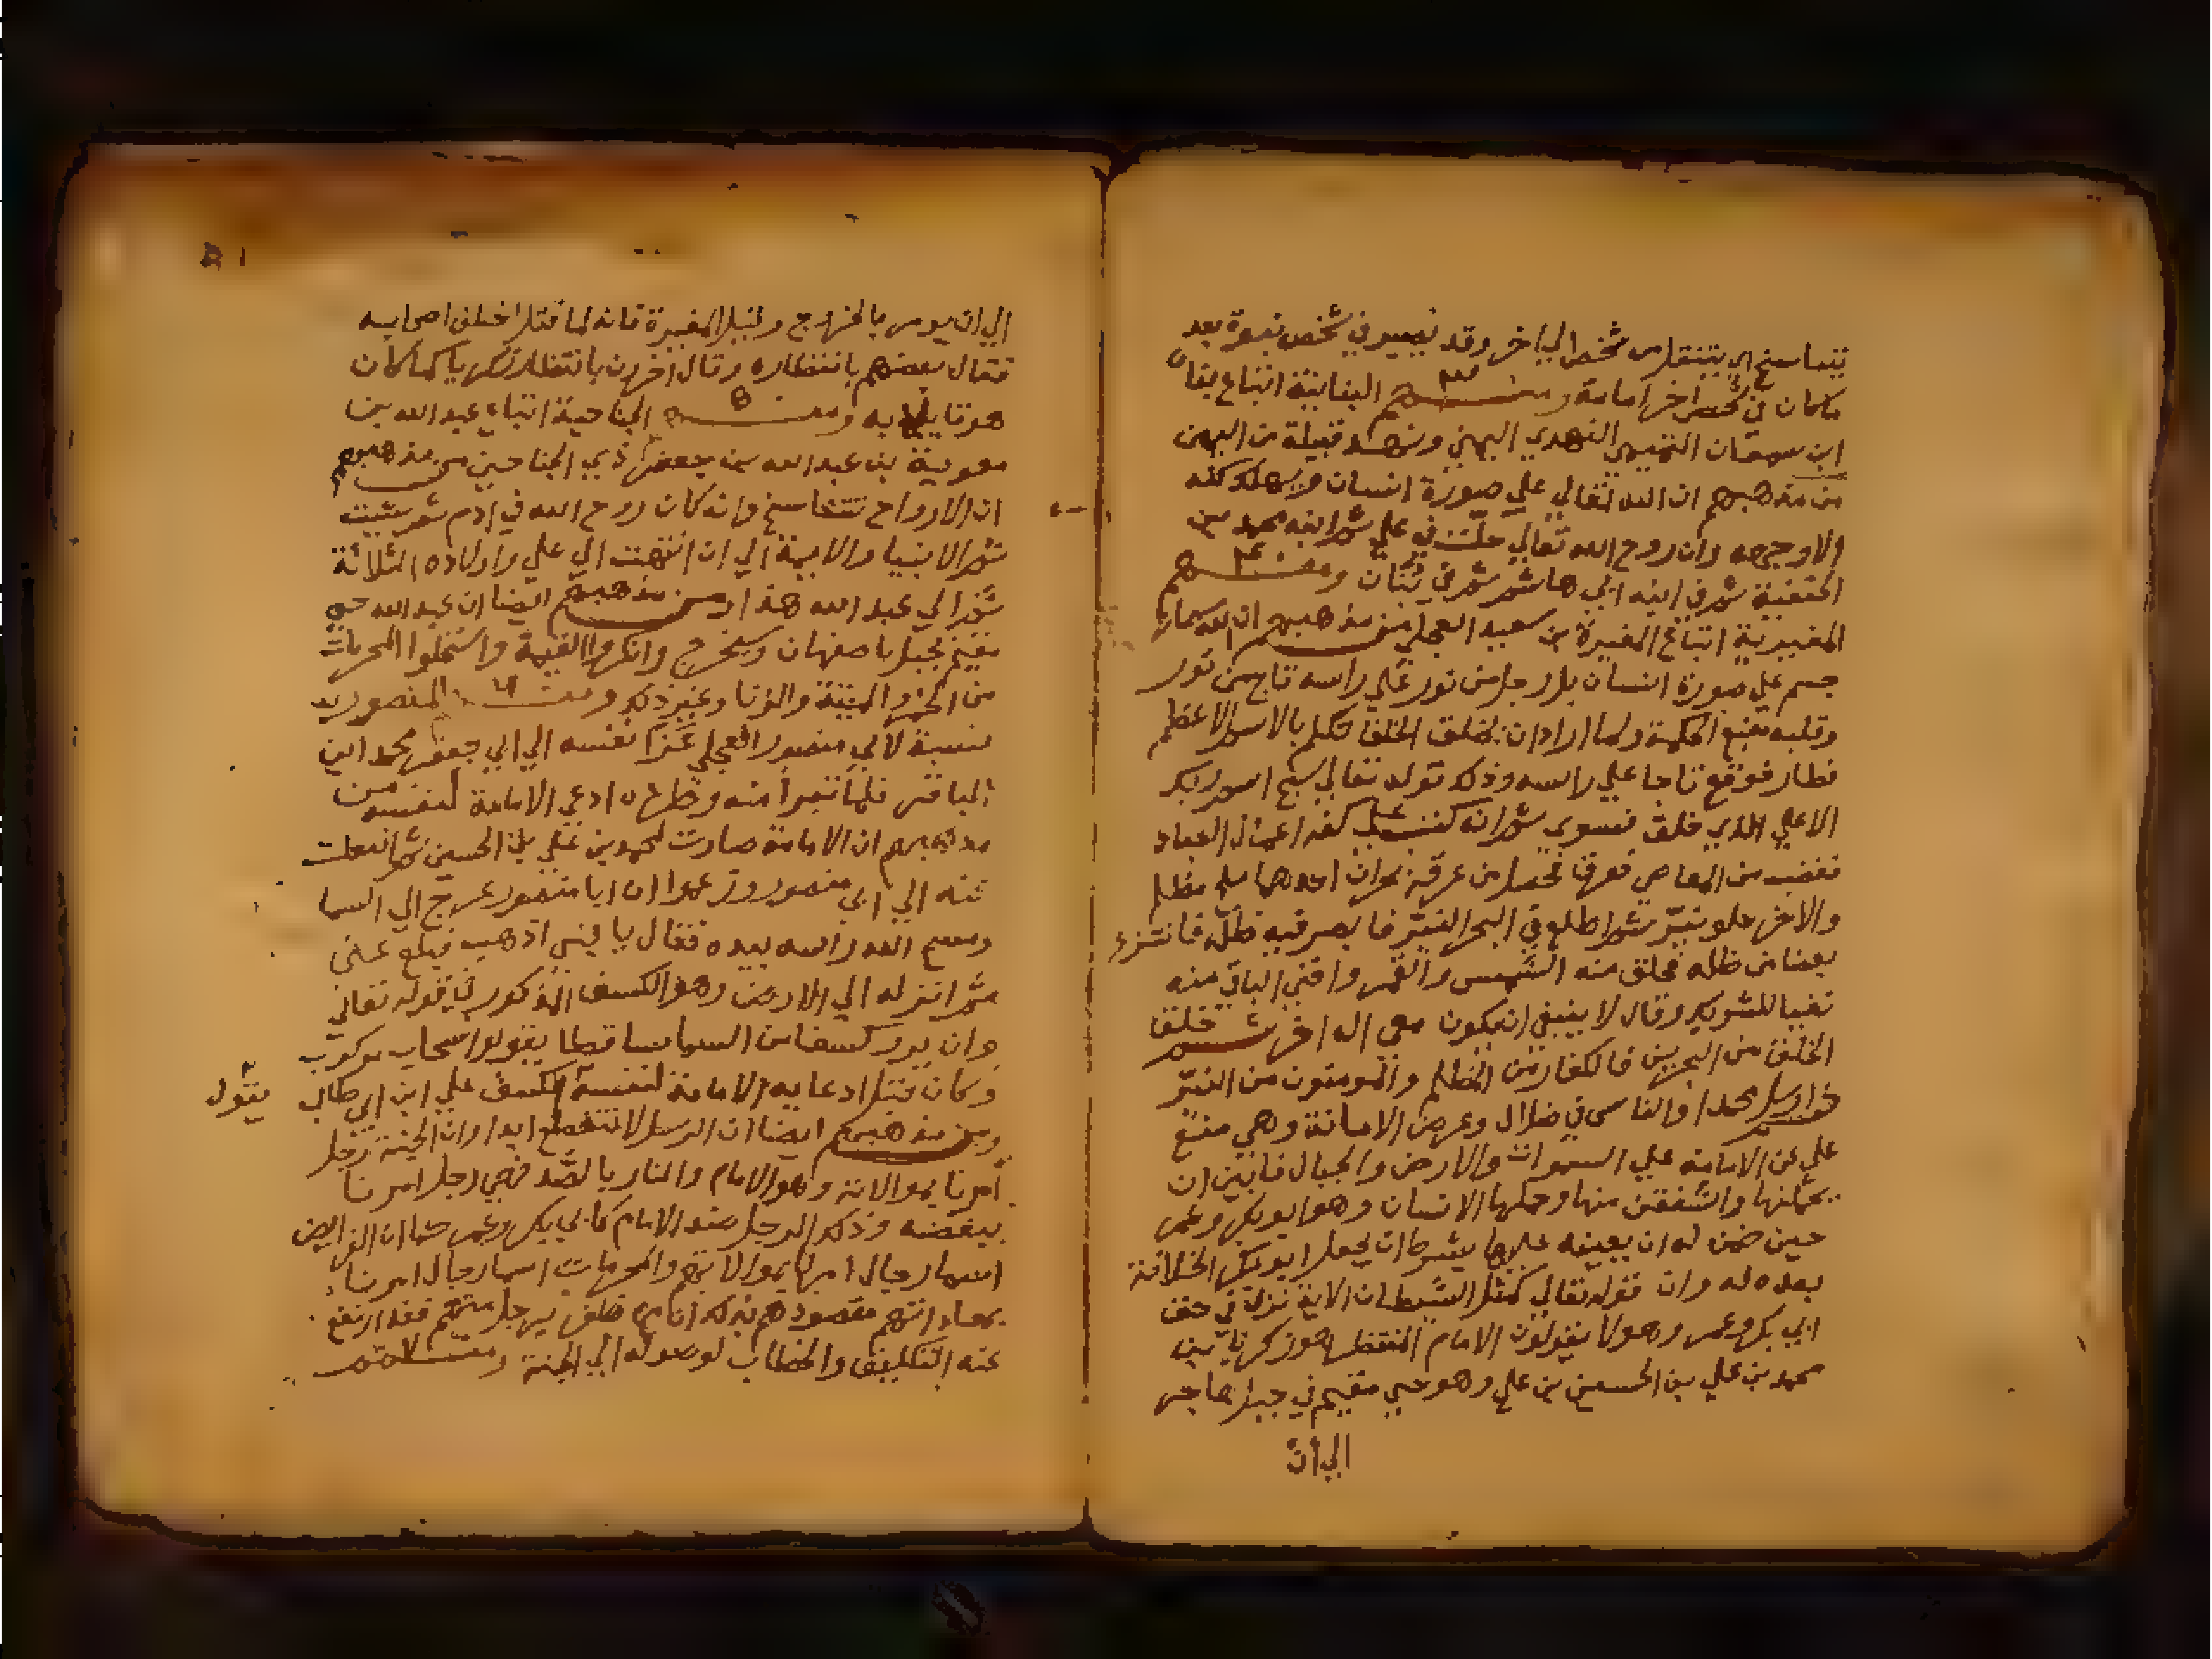 يتناسخ اي ينتقل من شخص الي اخر وقد تصير في شخص نبوة بعد
ما كان في شخص اخر امامة ومنهم ٣ البنانية اتباع بنان
ابن سمعان التميمي النهدي اليمني ونهد قبيلة من اليمن
من مذهبهم ان الله تعالي علي صورة انسان ويهلك كله
الا وجهه وان روح الله تعالي حلت في علي ثم ابنه محمد بن
الحنفية ثم في ابنه ابي هاشم ثم في بنان ومنهم ٤
المغيرية اتباع المغيرة بن سعيد العجلي من مذهبهم ان الله سبحانه
جسم علي صورة انسان بل رجل من نور علي راسه تاج من نور
وقلبه منبع الحكمة ولما اراد ان يخلق الخلق تكلم بالاسم الاعظم
فطار فوقع تاجا علي راسه وذلك قوله تعالي سبح اسم ربك
الاعلي الذي خلق فسوي ثم انه كتب علي كفه اعمال العباد
فغضب من المعاصي فعرق فحصل من عرقه بحران احدهما ملح مظلم
والاخر حلو نير ثم اطلع في البحر النير فابصر فيه ظله فانتزع
بعضا من ظله فخلق منه الشمس والقمر وافني الباقي منه
نفيا للشريك وقال لا ينبغي ان يكون معي اله اخر ثم خلق
الخلق من البحرين فالكفار من المظلم والمومنون من النير
ثم ارسل محمدا والناس في ضلال وعرض الامانة وهي منع
علي عن الامامة علي السموات والارض والجبال فابين ان
يحملنها واشفقن منها وحملها الانسان وهو ابو بكر وعمر
حين ضمن له ان يعينه عليها بشرط ان يجعل ابو بكر الخلافة
بعده له وان قوله تعالي كمثل الشيطان الاية نزلت في حق
ابي بكر وعمر وهولا يقولون الامام المنتظر هو زكريا بن
محمد بن علي بن الحسين بن علي وهو حي مقيم في جبل حاجر
الي ان
الي ان يومر بالخروج وقيل المغيرة فانه لما قتل اختلف اصحابه
فقال بعضهم بانتظاره وقال اخرون بانتظار زكريا كما كان
هو قايلا به ومنهم ٥ الجناحية اتباع عبد الله بن
معوية بن عبد الله بن جعفر ذي الجناحين من مذهبهم
ان الارواح تتناسخ وانه كان روح الله في ادم ثم شيث
ثم الانبيا والايمة الي ان انتهت الي علي واولاده الثلاثة
ثم الي عبد الله هذا ومن مذهبهم ايضا ان عبد الله حي
مقيم بجبل باصفهان وسيخرج وانكروا القيمة واستحلوا المحرمات
من الخمر والميتة والزنا وغير ذلك ومنهم ٦ المنصورية
نسبة لابي منصور العجلي عزا نفسه الي ابي جعفر محمد ابن
الباقر فلما تبرا منه وطرده ادعي الامامة لنفسه من
مذهبهم ان الامامة صارت لمحمد بن علي بن الحسين ثم انتقلت
عنه الي ابي منصور وزعموا ان ابا منصور عرج الي السما
ومسح الله راسه بيده فقال يا بني اذهب فبلغ عني
ثم انزله الي الارض وهو الكسف المذكور في قوله تعالي
وان يروا كسفا من السما ساقطا يقولوا سحاب مركوم
وكان قبل ادعايه الامامة لنفسه الكسف علي ابن ابي طالب
يقول
ومن مذهبهم ايضا ان الرسل لا تنقطع ابدا وان الجنة رجل
امرنا بموالاته وهو الامام والنار بالضد فهي رجل امرنا
ببغضه وذلك الرجل ضد الامام كابي بكر وعمر وان الفرايض
اسما رجال امرنا بموالاتهم والمحرمات اسما رجال امرنا
بمعاداتهم مقصودهم بذلك ان من ظفر برجل منهم فقد ارتفع
عنه التكليف والخطاب لوصوله الي الجنة ومنهم ٧